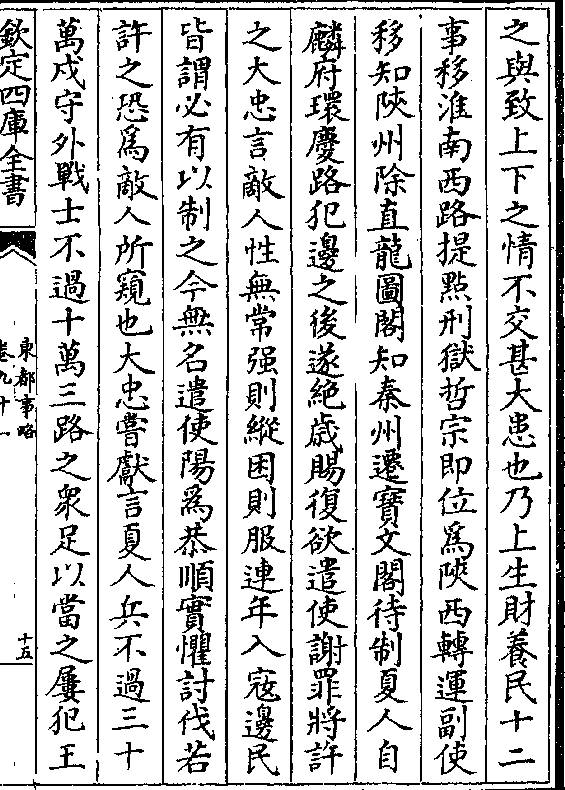 之與致上下之情不交甚大患也乃上生財養民十二
事移淮南西路提㸃刑獄哲宗即位爲陜西轉運副使
移知陜州除直龍圖閣知秦州遷寳文閣待制夏人自
麟府環慶路犯邊之後遂絶歲賜復欲遣使謝罪將許
之大忠言敵人性無常强則縱困則服連年入㓂邊民
皆謂必有以制之今無名遣使陽爲恭順實懼討伐若
許之恐爲敵人所窺也大忠嘗獻言夏人兵不過三十
萬戍守外戰士不過十萬三路之衆足以當之屢犯王
欽定四庫全書
東都事略
卷九十一
十五